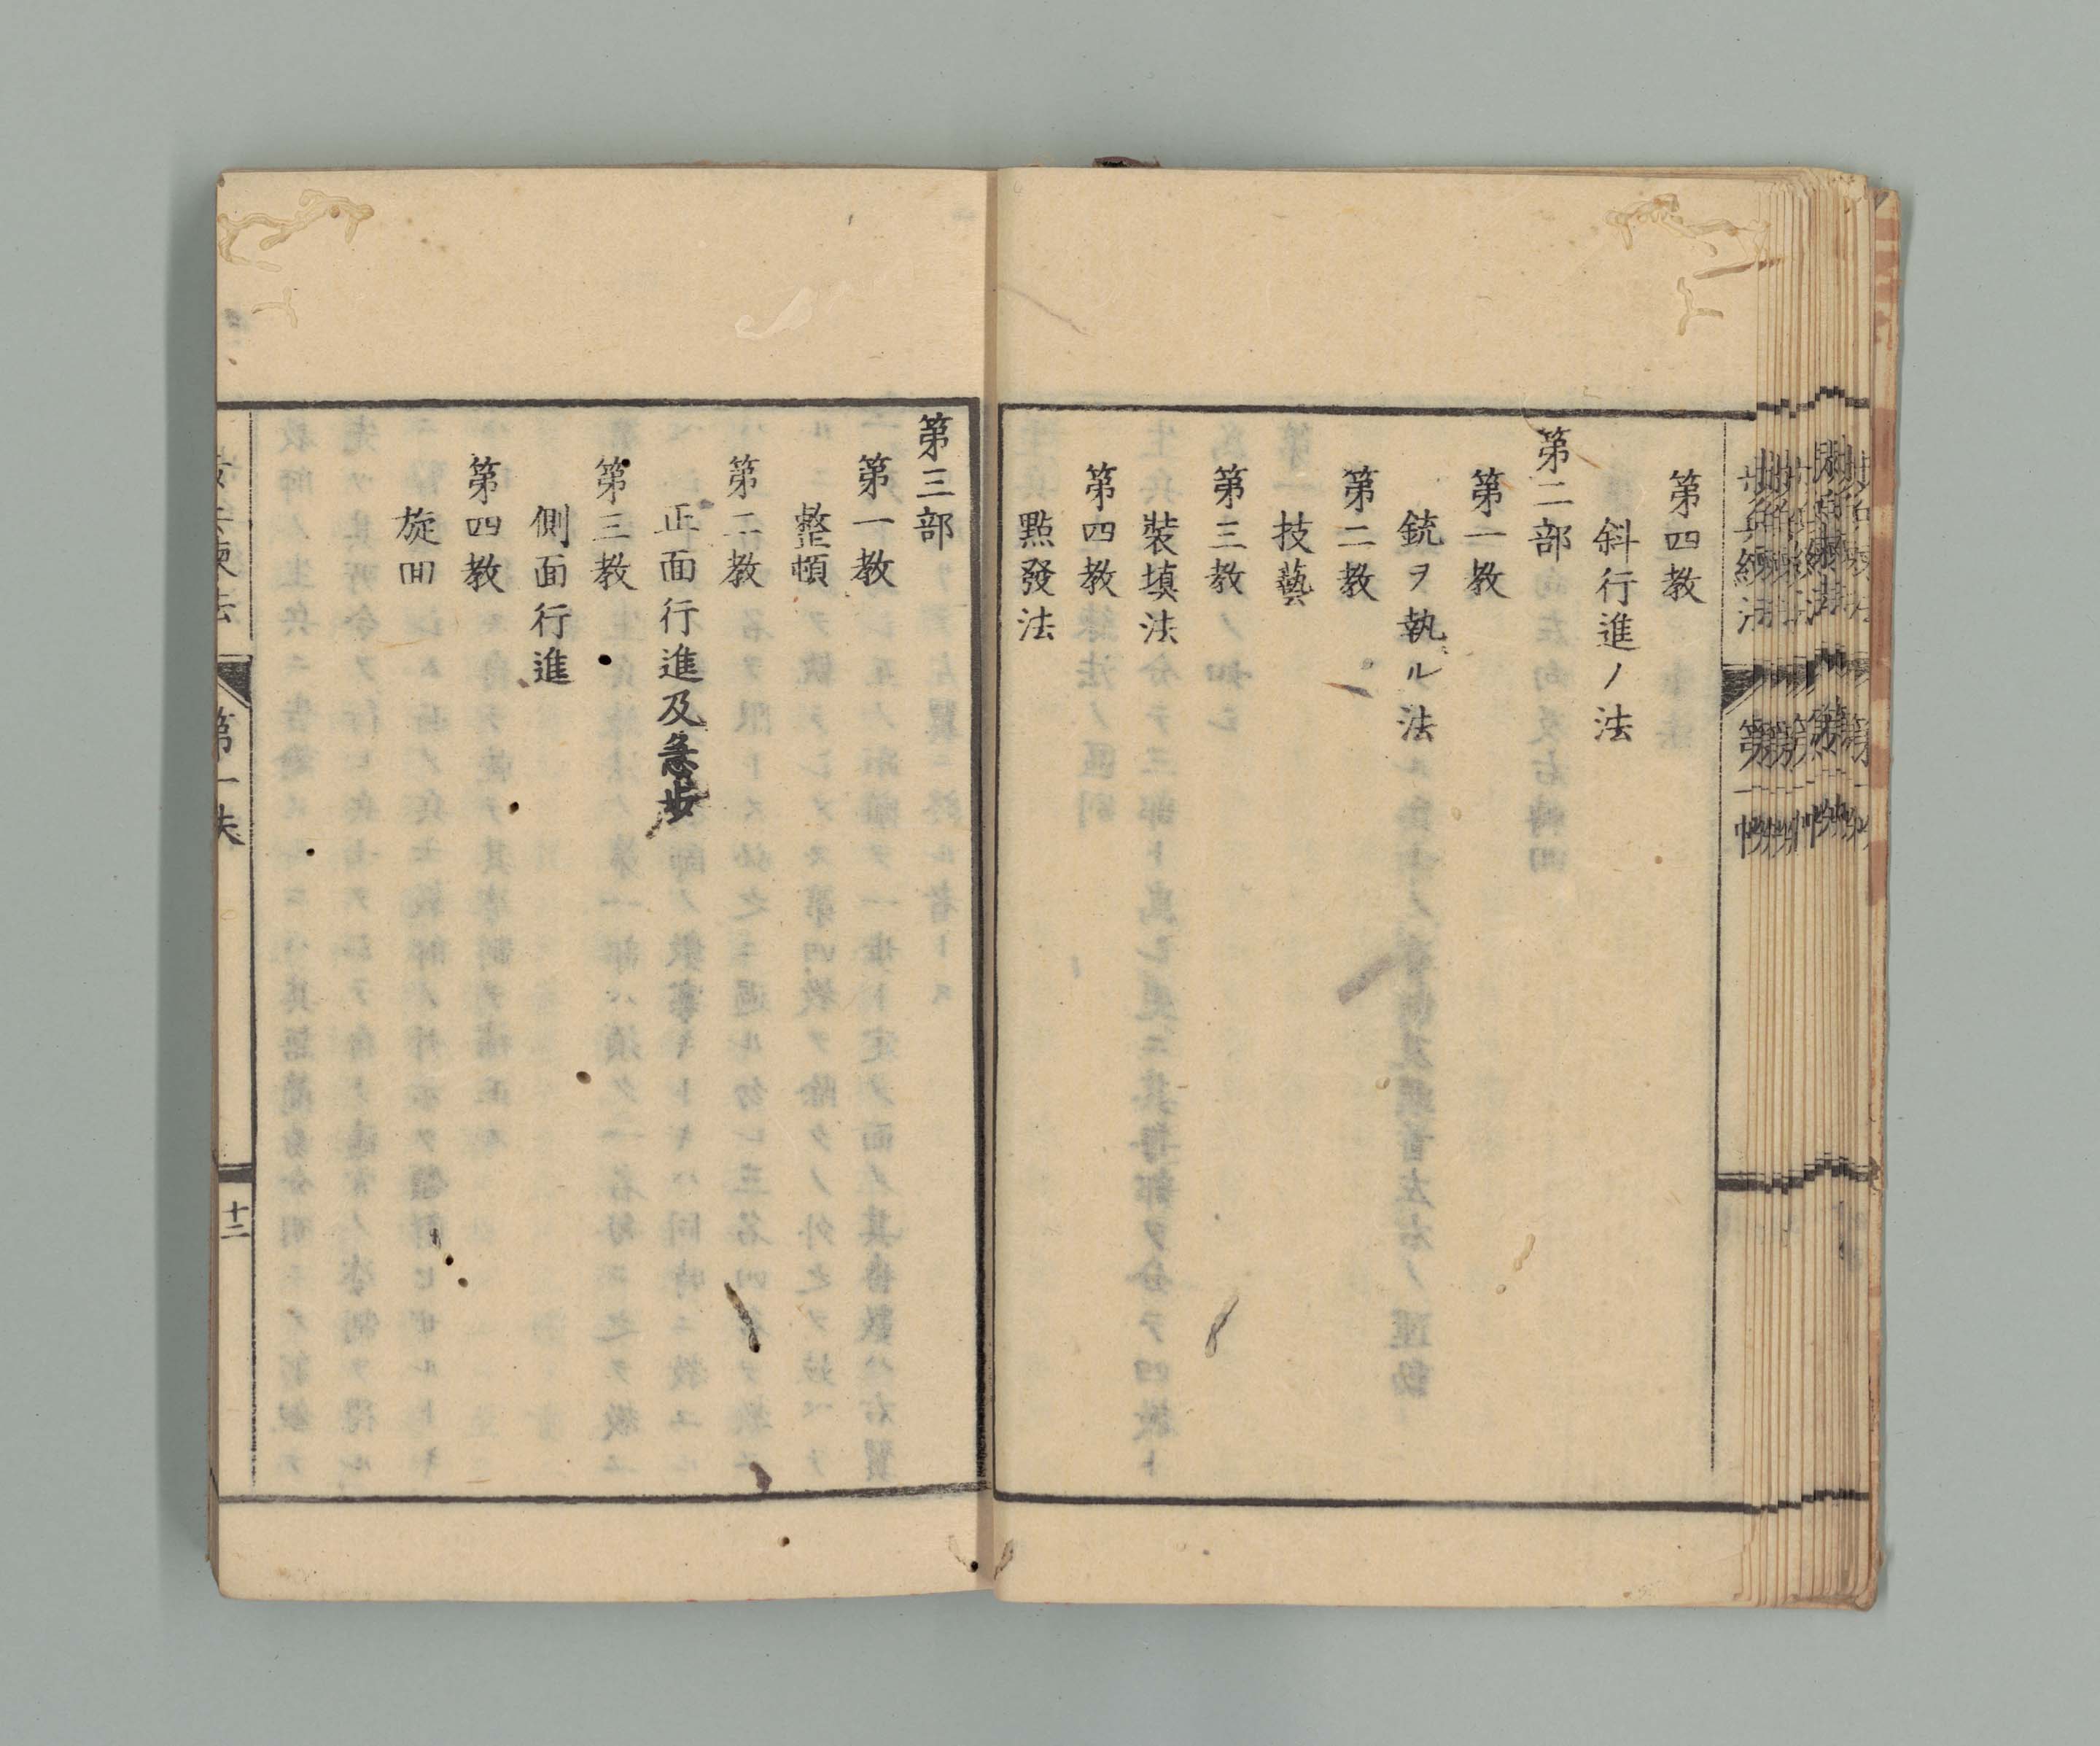 第四教
斜行進ノ法
第二部
第一教
銃ヲ執ル法
第二教
技藝
第三教
裝填法
第四教
點發法
第三部
第一教
整頓
第二教
正面行進及急步
第三教
側面行進
第四教
旋回
第一帙
十二